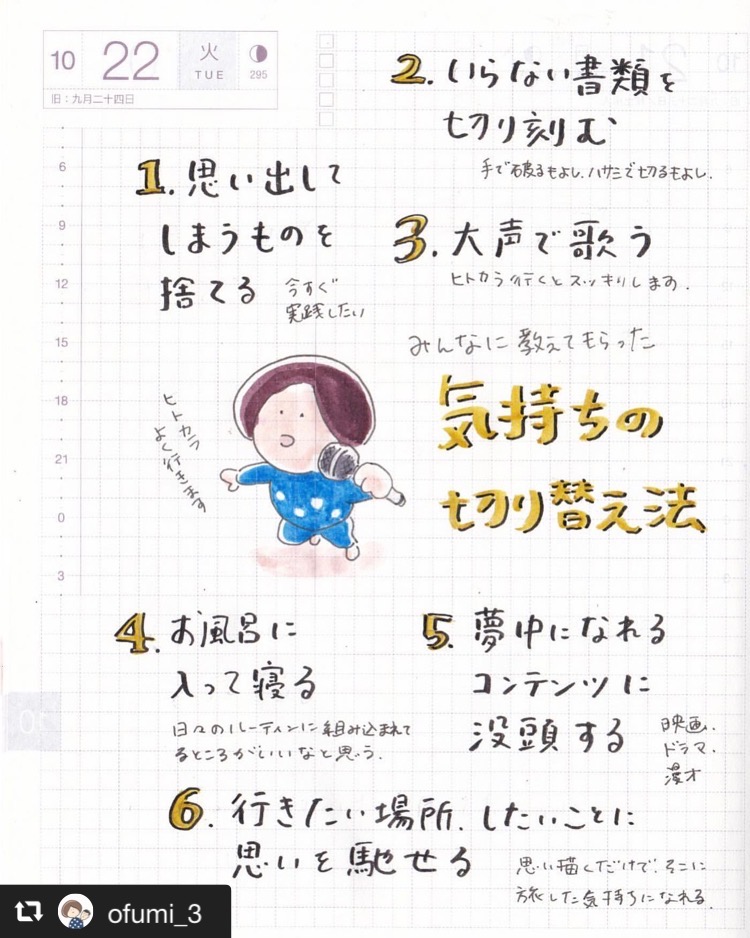 10 22 火 TUE 295
旧：九月二十四日
6
9
12
15
18
21
0
3
1. 思い出して
しまうものを
捨てる
今すぐ
実践したい
2. いらない書類を
切り刻む
手で破るもよし、ハサミで切るもよし。
3. 大声で歌う
ヒトカラ行くとスッキリします。
みんなに教えてもらった
気持ちの
切り替え法
ヒトカラ
よく行きます
4. お風呂に
入って寝る
日々のルーティンに組み込まれて
るところがいいなと思う。
5. 夢中になれる
コンテンツに
没頭する
映画・
ドラマ・
漫才
6. 行きたい場所、したいことに
思いを馳せる
思い描くだけで、そこに
旅した気持ちになれる。
10
ofumi_3